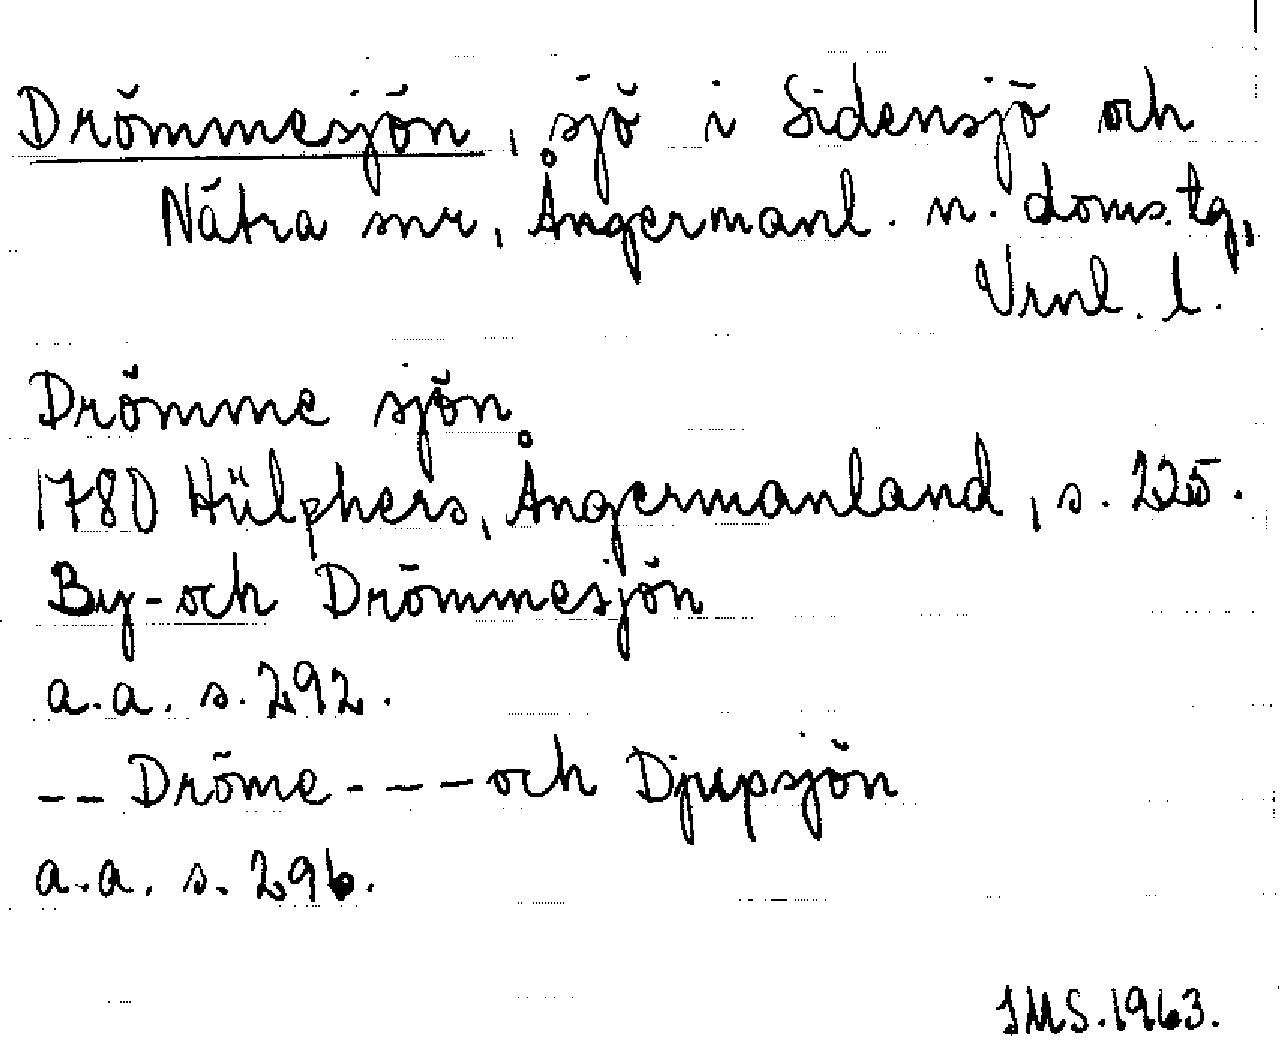 Drömmesjön, sjö i Sidensjö och
Nätra snr, Ångermanl. n. doms.tg,
Vrnl. l.
Drömme sjön
1780 Hülphers, Ångermanland, s. 225.
By-och Drömmesjön
a.a. s. 292.
-- Dröme - - - - och Djupsjön
a.a. s. 296.
IMS. 1963.